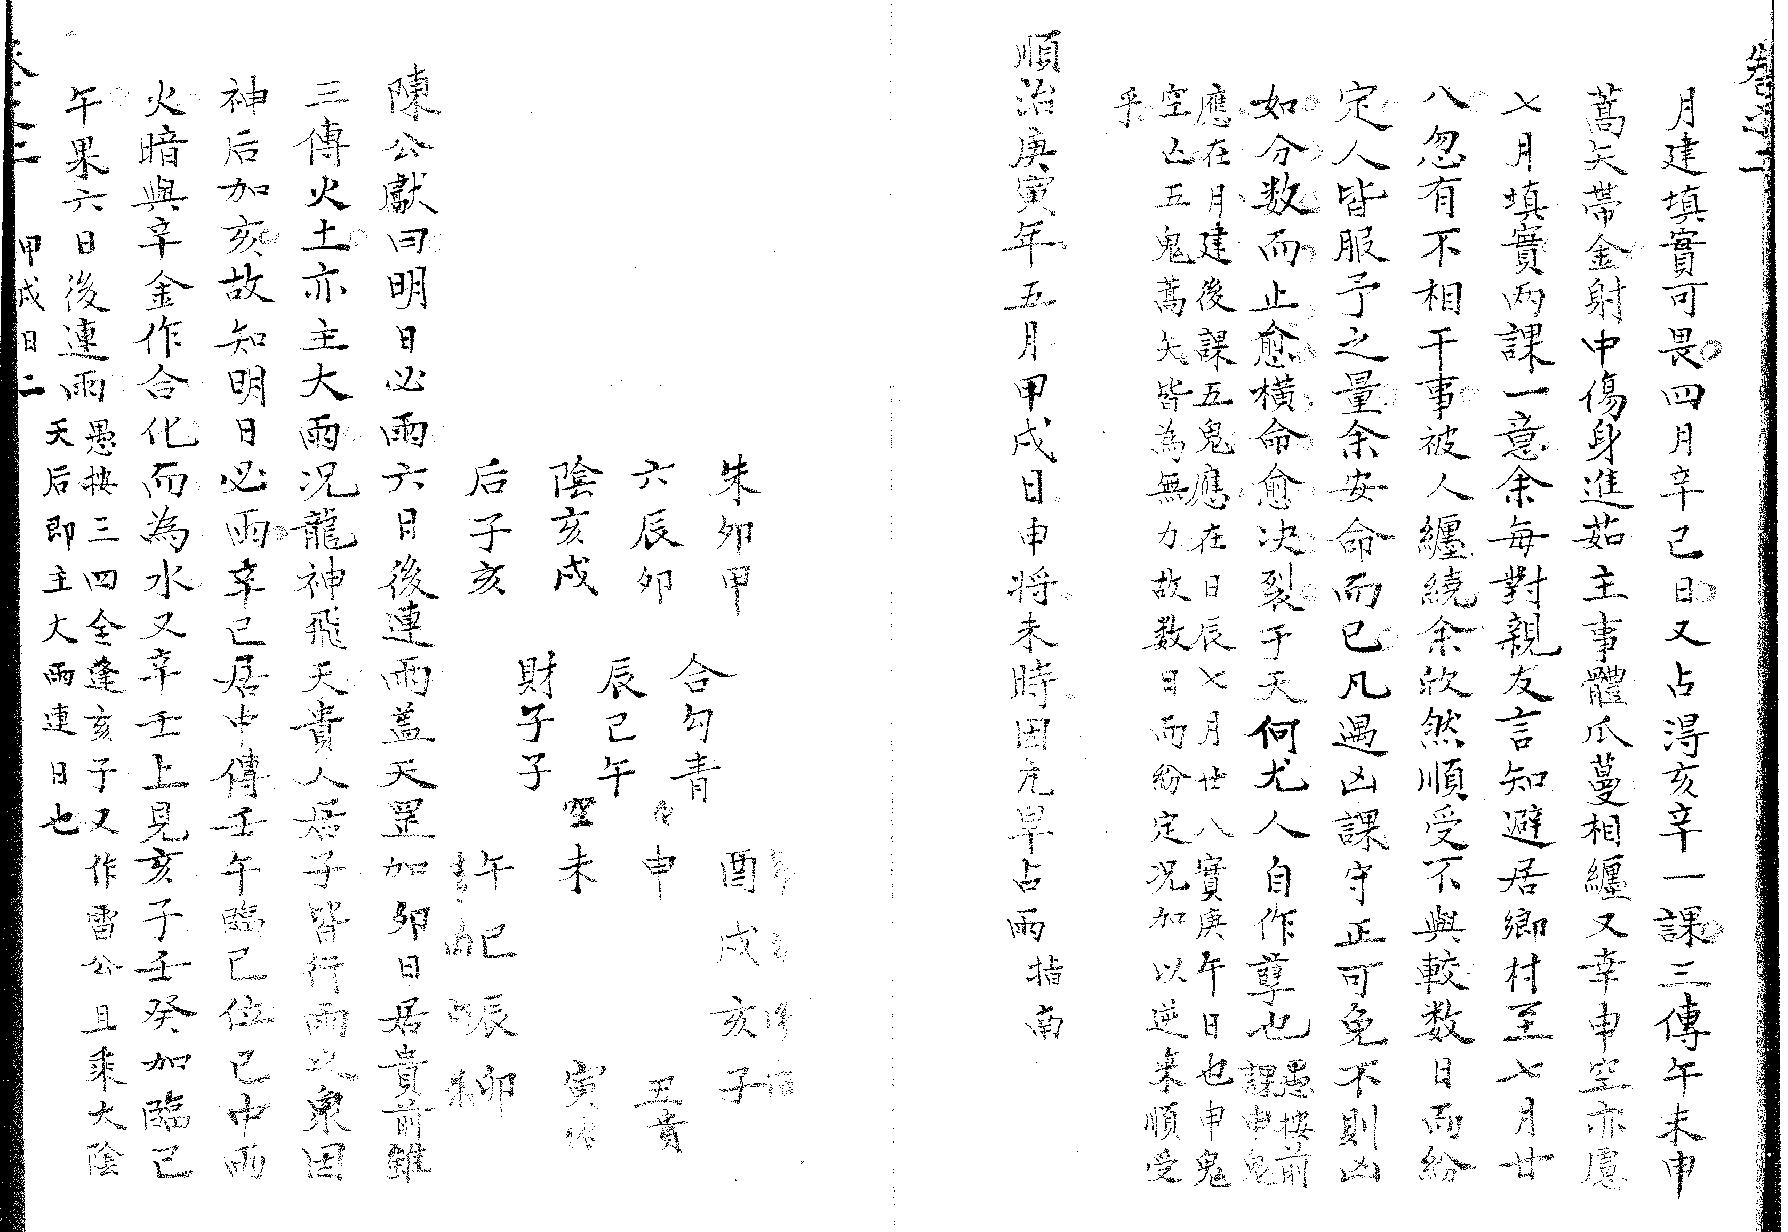 月建填實可畏四月辛己日又占得亥辛一課三傳午未申
蒿矢帯金射中傷身進茹主事體瓜蔓相纏又幸申空亦慮
七月填實两課一意余每對親友言知避居鄉村至七月廿
八忽有不相干事被人纏繞余欣然順受不與較数日而紛
定人皆服予之量余安命而已凡遇凶課守正可免不則凶
如分数而止愈橫命愈决裂于天何尤人自作孽也
愚按前
課申鬼
應在月建後課五鬼應在日辰七月廿八實庚午日也申鬼
空亡五鬼蒿矢皆為無力故数日而紛定况加以逆来順受
乎
順治庚寅年五月甲戌日申将未時因亢旱占雨 指南
朱卯甲
六辰卯
陰亥戌
后子亥
合勾青
辰己午
財子子
空未
申
酉戌亥子
丑貴
寅
午巳辰卯
陳公獻曰明日必雨六日後連雨盖天罡加卯日居貴前雖
三傳火土亦主大雨况龍神飛天貴人居子皆行雨之象因
神后加亥故知明日必雨辛己居中傳壬午臨己位已中丙
火暗與辛金作合化而為水又辛壬上見亥子壬癸加臨己
午果六日後連雨
愚按三四全逢亥子又作雷公且乘大陰
天后即主大雨連日也
甲戌日二